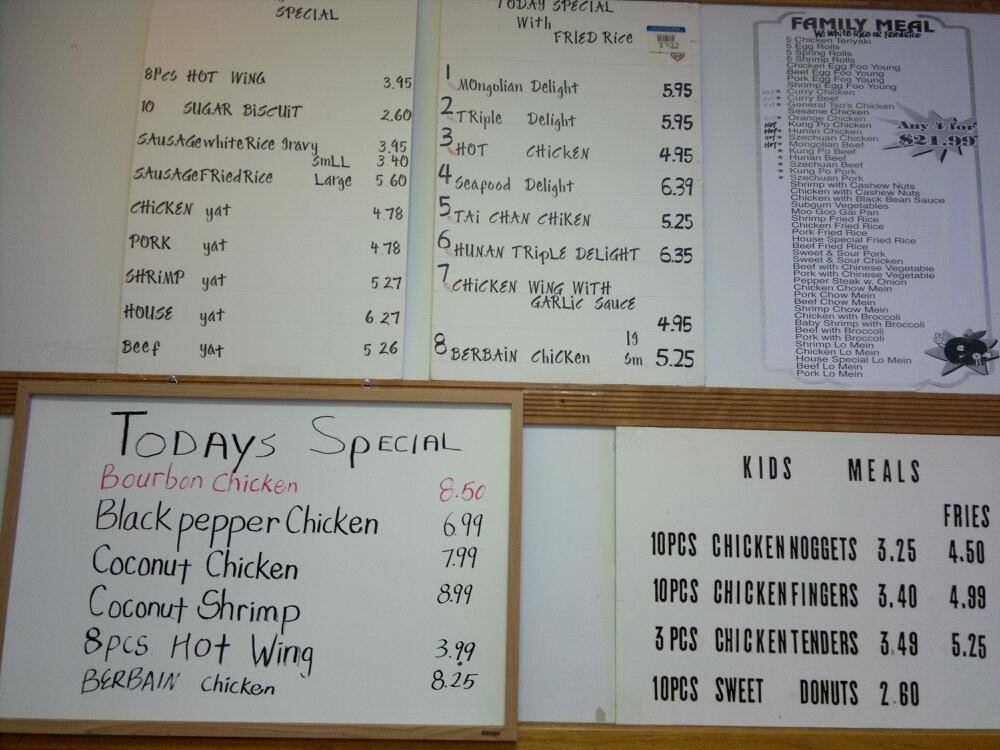 SPECIAL
8Pcs HOT WING 3.95
10 SUGAR BISCUIT 2.60
SAUSAGE white Rice gravy 3.95
SmLL 3.40
SAUSAGE FRied Rice Large 5.60
CHICKEN yat 4.78
PORK yat 4.78
SHRIMP yat 5.27
HOUSE yat 6.27
Beef yat 5.26
TODAY SPECIAL
With
FRIED Rice
1 MOngolian Delight 5.95
2 TRiple Delight 5.95
3 HOT CHICKEN 4.95
4 Seafood Delight 6.39
5 TAI CHAN CHIKEN 5.25
6 HUNAN TRIPLE DELIGHT 6.35
7 CHICKEN WING WITH
GARLIC Sauce
4.95
8 BERBAIN CHICKEN lg
Sm 5.25
FAMILY MEAL
W: White Rice OR Fried Rice
5 Chicken Teriyaki
5 Egg Rolls
5 Spring Rolls
5 Shrimp Rolls
Chicken Egg Foo Young
Beef Egg Foo Young
Pork Egg Foo Young
Shrimp Egg Foo Young
Curry Chicken
Curry Beef
General Tso's Chicken
Sesame Chicken
Orange Chicken
Hot * Kung Po Chicken
Hot * Hunan Chicken
Hot * Szechuan Chicken
Hot * Mongolian Beef
* Kung Po Beef
* Hunan Beef
* Szechuan Beef
* Kung Po Pork
* Szechuan Pork
Shrimp with Cashew Nuts
Chicken with Cashew Nuts
Chicken with Black Bean Sauce
Subgum Vegetables
Moo Goo Gai Pan
Shrimp Fried Rice
Chicken Fried Rice
Pork Fried Rice
House Special Fried Rice
Beef Fried Rice
Sweet & Sour Pork
Sweet & Sour Chicken
Beef with Chinese Vegetable
Pork with Chinese Vegetable
Pepper Steak w. Onion
Chicken Chow Mein
Pork Chow Mein
Beef Chow Mein
Shrimp Chow Mein
Chicken with Broccoli
Baby Shrimp with Broccoli
Beef with Broccoli
Pork with Broccoli
Shrimp Lo Mein
Chicken Lo Mein
House Special Lo Mein
Beef Lo Mein
Pork Lo Mein
Any 4 for
$21.99
TODAYS SPECIAL
Bourbon Chicken 8.50
Black pepper Chicken 6.99
Coconut Chicken 7.99
Coconut Shrimp 8.99
8pcs Hot Wing 3.99
BERBAIN Chicken 8.25
KIDS MEALS
FRIES
10PCS CHICKEN NOGGETS 3.25 4.50
10PCS CHICKEN FINGERS 3.40 4.99
3 PCS CHICKEN TENDERS 3.49 5.25
10PCS SWEET DONUTS 2.60